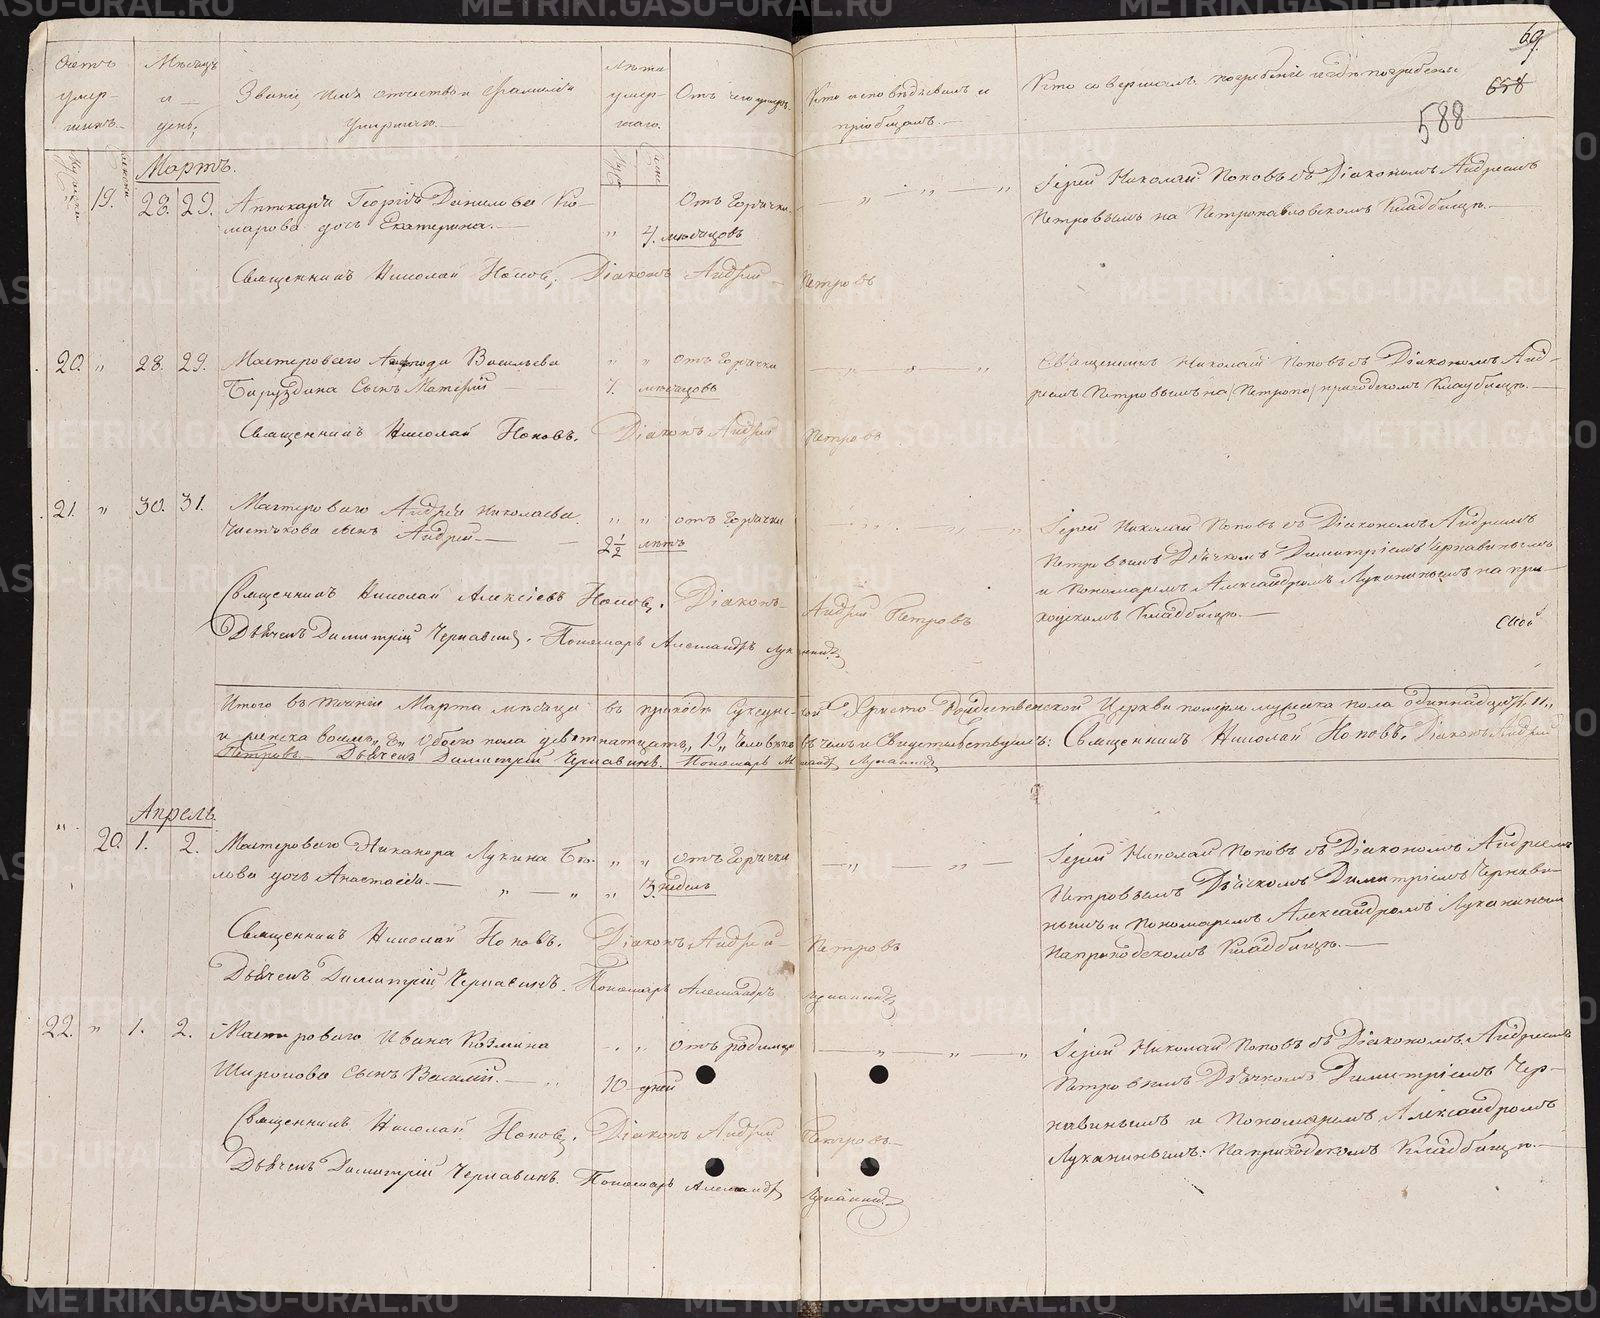 69.
658
588
Счетъ умер- шихъ.
Мѣсяцъ и день.
Званіе, имя отчество и фамилія умершаго.
Лѣта умер- шаго.
Отъ чего умеръ.
Кто исповѣдывалъ и пріобщалъ.
Кто совершалъ погребеніе и гдѣ погребены
Мартъ.
19. 28. 29. Аптекаря Георгія Данилова Ко- Отъ Горячки. Іерей Николай Поповъ съ Діакономъ Андреемъ
марова дочь Екатерина. 4. мѣсяцовъ Петровымъ на Петропавловскомъ Кладбищѣ.
Священникъ Николай Поповъ, Діаконъ Андрей Петровъ
20. 28. 29. Мастероваго Васильева отъ Горячки Священникъ Николай Поповъ съ Діакономъ Анд-
сынъ 7. мѣсяцовъ реемъ Петровымъ на приходскомъ Кладбищѣ.
Священникъ Николай Поповъ. Діаконъ Андрей Петровъ
21. 30. 31. Мастероваго Андрея Николаева отъ Горячки Іерей Николай Поповъ съ Діакономъ Андреемъ
Чистякова сынъ Андрей. 2½ лѣтъ Петровымъ Дьячкомъ Димитріемъ Чернавинымъ
и Пономаремъ Александромъ Луканинымъ на при-
ходскомъ Кладбищѣ.
Священникъ Николай Алексіевъ Поповъ. Діаконъ Андрей Петровъ
Дьячекъ Димитрій Чернавинъ. Пономарь Александръ Луканинъ
Итого въ теченіи Марта мѣсяца въ приходѣ Суксунской Христо Рождественской Церкви померло мужеска пола одиннадцать 11,,
и женска восемь,, 8,, Обоего пола девятнатцать,, 19,, Человѣкъ въ чемъ и Свидетельствуемъ: Священникъ Николай Поповъ. Діаконъ Андрей
Петровъ. Дьячекъ Димитрій Чернавинъ. Пономарь Александръ Луканинъ
Апрель.
20. 1. 2. Мастероваго Никанора Лукина Бѣ- отъ Горячки Іерей Николай Поповъ съ Діакономъ Андреемъ
лова дочь Анастасія. 3. недель Петровымъ Дьячкомъ Димитріемъ Чернави-
нымъ и Пономаремъ Александромъ Луканинымъ
на приходскомъ Кладбищѣ.
Священникъ Николай Поповъ. Діаконъ Андрей Петровъ
Дьячекъ Димитрій Чернавинъ. Пономарь Александръ Луканинъ
22. 1. 2. Мастероваго Ивана Козмина отъ родимца Іерей Николай Поповъ съ Діакономъ Андреемъ
Широкова сынъ Василій. 10 дней Петровымъ Дьячкомъ Димитріемъ Чер-
навинымъ и Пономаремъ Александромъ
Луканинымъ: на приходскомъ Кладбищѣ.
Священникъ Николай Поповъ. Діаконъ Андрей Петровъ
Дьячекъ Димитрій Чернавинъ. Пономарь Александръ Луканинъ
METRIKI.GASO-URAL.RU